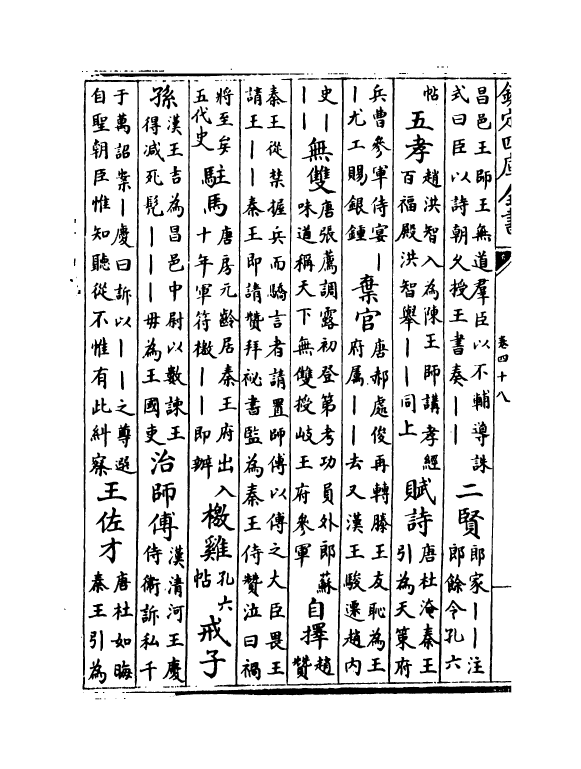 欽定四庫全書
卷四十八
昌邑王師王無道羣臣以不輔導誅
式曰臣以詩朝夕授王書奏丨丨
二賢
郎家丨丨注
郎餘令孔六
帖
五孝
趙洪智入為陳王師講孝經
百福殿洪智舉丨丨同上
賦詩
唐杜淹秦王
引為天策府
兵曹參軍侍宴丨
丨尤工賜銀鍾
棄官
唐郝處俊再轉滕王友恥為王
府属丨丨去又漢王駿遷趙内
史丨
丨丨
無雙
唐張薦調露初登第考功員外郎蘇
味道稱天下無雙授岐王府參軍
自擇
趙
贊
秦王從榮握兵而驕言者請置師傅以傅之大臣畏王
請王丨丨秦王即請贊拜祕書監為秦王侍贊泣曰禍
將至矣
五代史
駐馬
唐房元齡居秦王府出入
十年軍符檄丨丨即辦
檄雞
孔六
帖
戒子
孫
漢王吉為昌邑中尉以數諫王
得減死髠丨丨丨毋為王國吏
治師傅
漢清河王慶
侍衛訴私千
于萬詔案丨慶曰訴以丨丨之尊選
自聖朝臣惟知聽從不惟有此糾察
王佐才
唐杜如晦
秦王引為